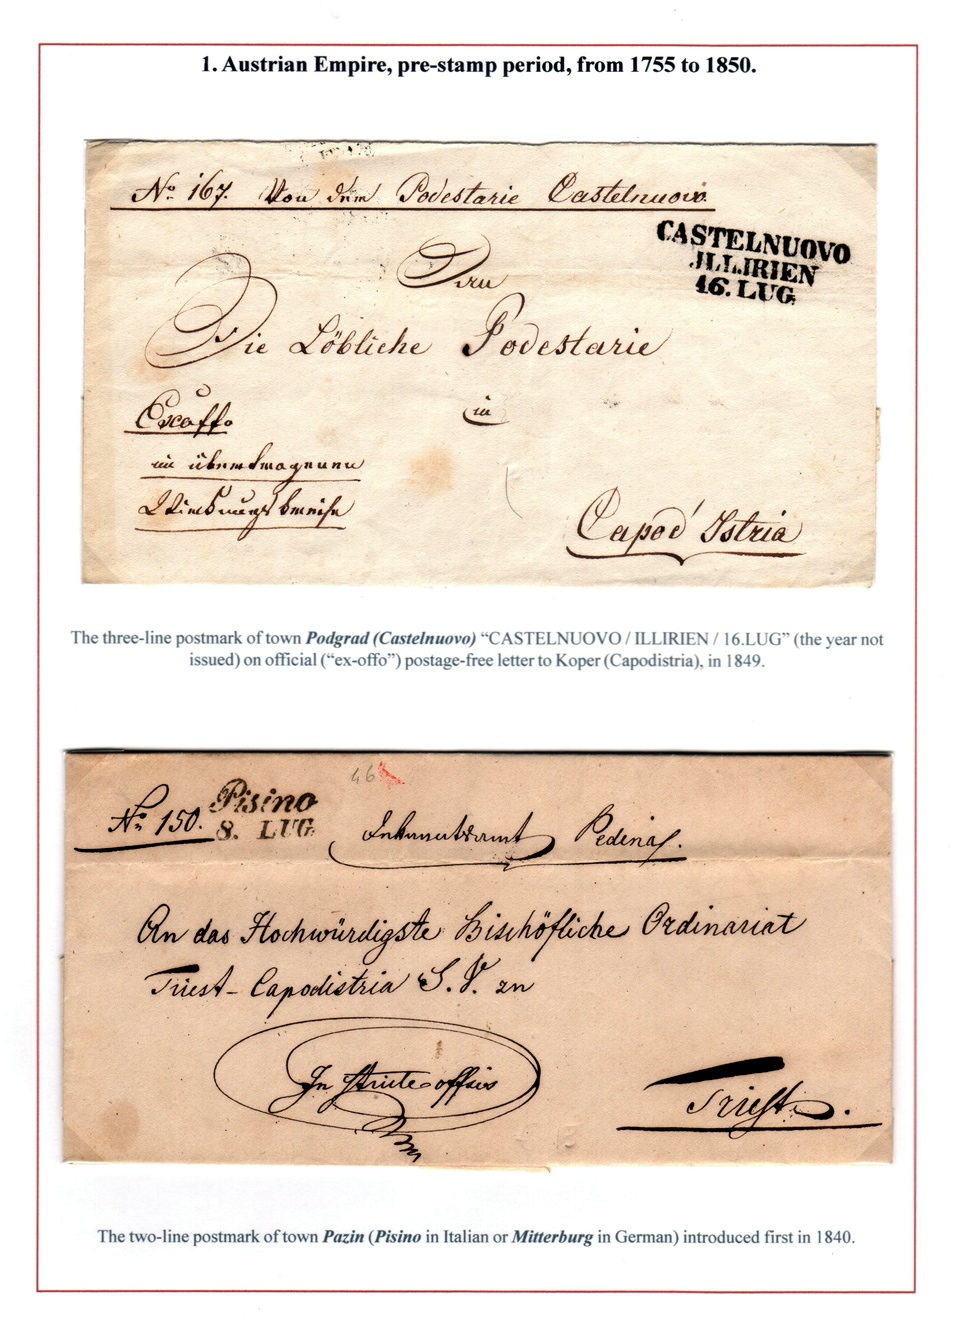 1. Austrian Empire, pre-stamp period, from 1755 to 1850.
No. 167. Von dem Podestarie Castelnuovo.
CASTELNUOVO
ILLIRIEN
16. LUG
An
Die Löbliche Podestarie
in
Capod' Istria
The three-line postmark of town Podgrad (Castelnuovo) “CASTELNUOVO / ILLIRIEN / 16.LUG” (the year not
issued) on official (“ex-offo”) postage-free letter to Koper (Capodistria), in 1849.
46
Pisino
8. LUG
No. 150. Pedina
An das Hochwürdigste Bischöfliche Ordinariat
Triest-Capodistria S. V. zn
In
Triest.
The two-line postmark of town Pazin (Pisino in Italian or Mitterburg in German) introduced first in 1840.